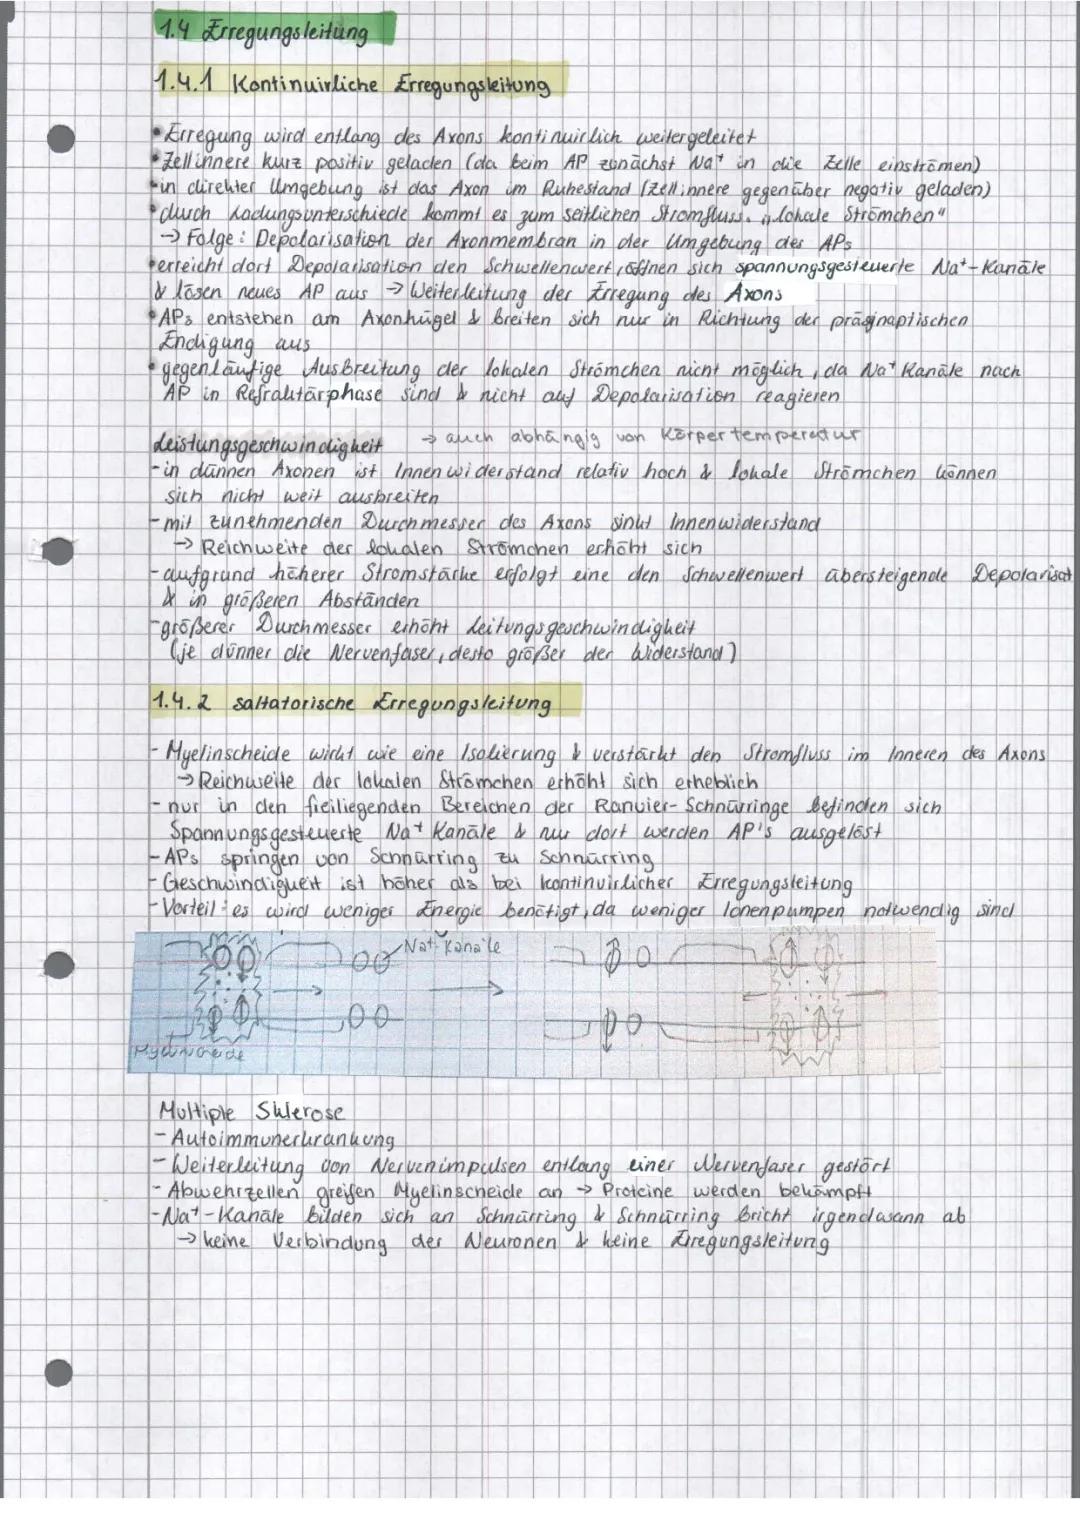 1.4 Erregungsleitung
1.4.1 Kontinuirliche Erregungsleitung
• Erregung wird entlang des Axons kontinuirlich weitergeleitet
• Zellinnere kurz positiv geladen (da beim AP zunächst Na⁺ in die Zelle einströmen)
• in direkter Umgebung ist das Axon im Ruhestand (Zellinnere gegenüber negativ geladen)
• durch Ladungsunterschiede kommt es zum seitlichen Stromfluss. „lokale Strömchen"
→ Folge: Depolarisation der Axonmembran in der Umgebung des APs
• erreicht dort Depolarisation den Schwellenwert, öffnen sich spannungsgesteuerte Na⁺-Kanäle
& lösen neues AP aus → Weiterleitung der Erregung des Axons
• APs entstehen am Axonhügel & breiten sich nur in Richtung der präsynaptischen
Endigung aus
• gegenläufige Ausbreitung der lokalen Strömchen nicht möglich, da Na⁺ Kanäle nach
AP in Refraktärphase sind & nicht auf Depolarisation reagieren
Leistungsgeschwindigkeit → auch abhängig von Körpertemperatur
- in dünnen Axonen ist Innenwiderstand relativ hoch & lokale Strömchen können
sich nicht weit ausbreiten
- mit zunehmenden Durchmesser des Axons sinkt Innenwiderstand
→ Reichweite der lokalen Strömchen erhöht sich
- aufgrund höherer Stromstärke erfolgt eine den Schwellenwert übersteigende Depolarisat
& in größeren Abständen
- größerer Durchmesser erhöht Leitungsgeschwindigkeit
(je dünner die Nervenfaser, desto größer der Widerstand)
1.4.2 saltatorische Erregungsleitung
- Myelinscheide wirkt wie eine Isolierung & verstärkt den Stromfluss im Inneren des Axons
→ Reichweite der lokalen Strömchen erhöht sich erheblich
- nur in den freiliegenden Bereichen der Ranvier-Schnürringe befinden sich
Spannungsgesteuerte Na⁺ Kanäle & nur dort werden AP's ausgelöst
- APs springen von Schnürring zu Schnürring
- Geschwindigkeit ist höher als bei kontinuirlicher Erregungsleitung
- Vorteil: es wird weniger Energie benötigt, da weniger Ionenpumpen notwendig sind
Na⁺-Kanäle
Multiple Sklerose
- Autoimmunerkrankung
- Weiterleitung von Nervenimpulsen entlang einer Nervenfaser gestört
- Abwehrzellen greifen Myelinscheide an → Proteine werden bekämpft
- Na⁺-Kanäle bilden sich an Schnürring & Schnürring bricht irgendwann ab
→ keine Verbindung der Neuronen & keine Erregungsleitung